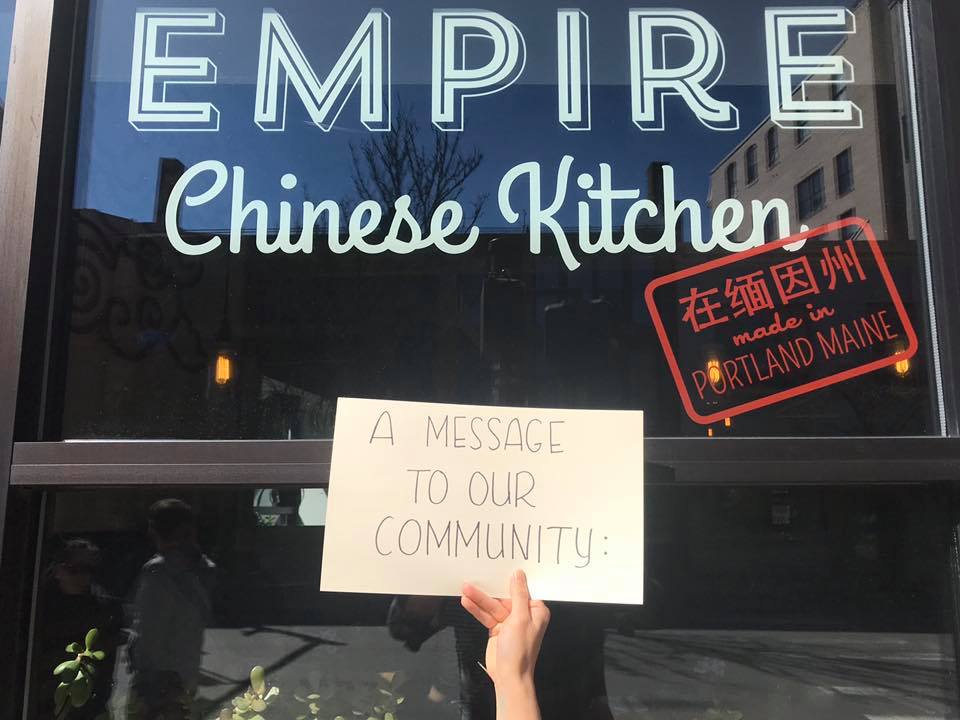 EMPIRE
Chinese Kitchen
在缅因州
made in
PORTLAND MAINE
A MESSAGE
TO OUR
COMMUNITY: